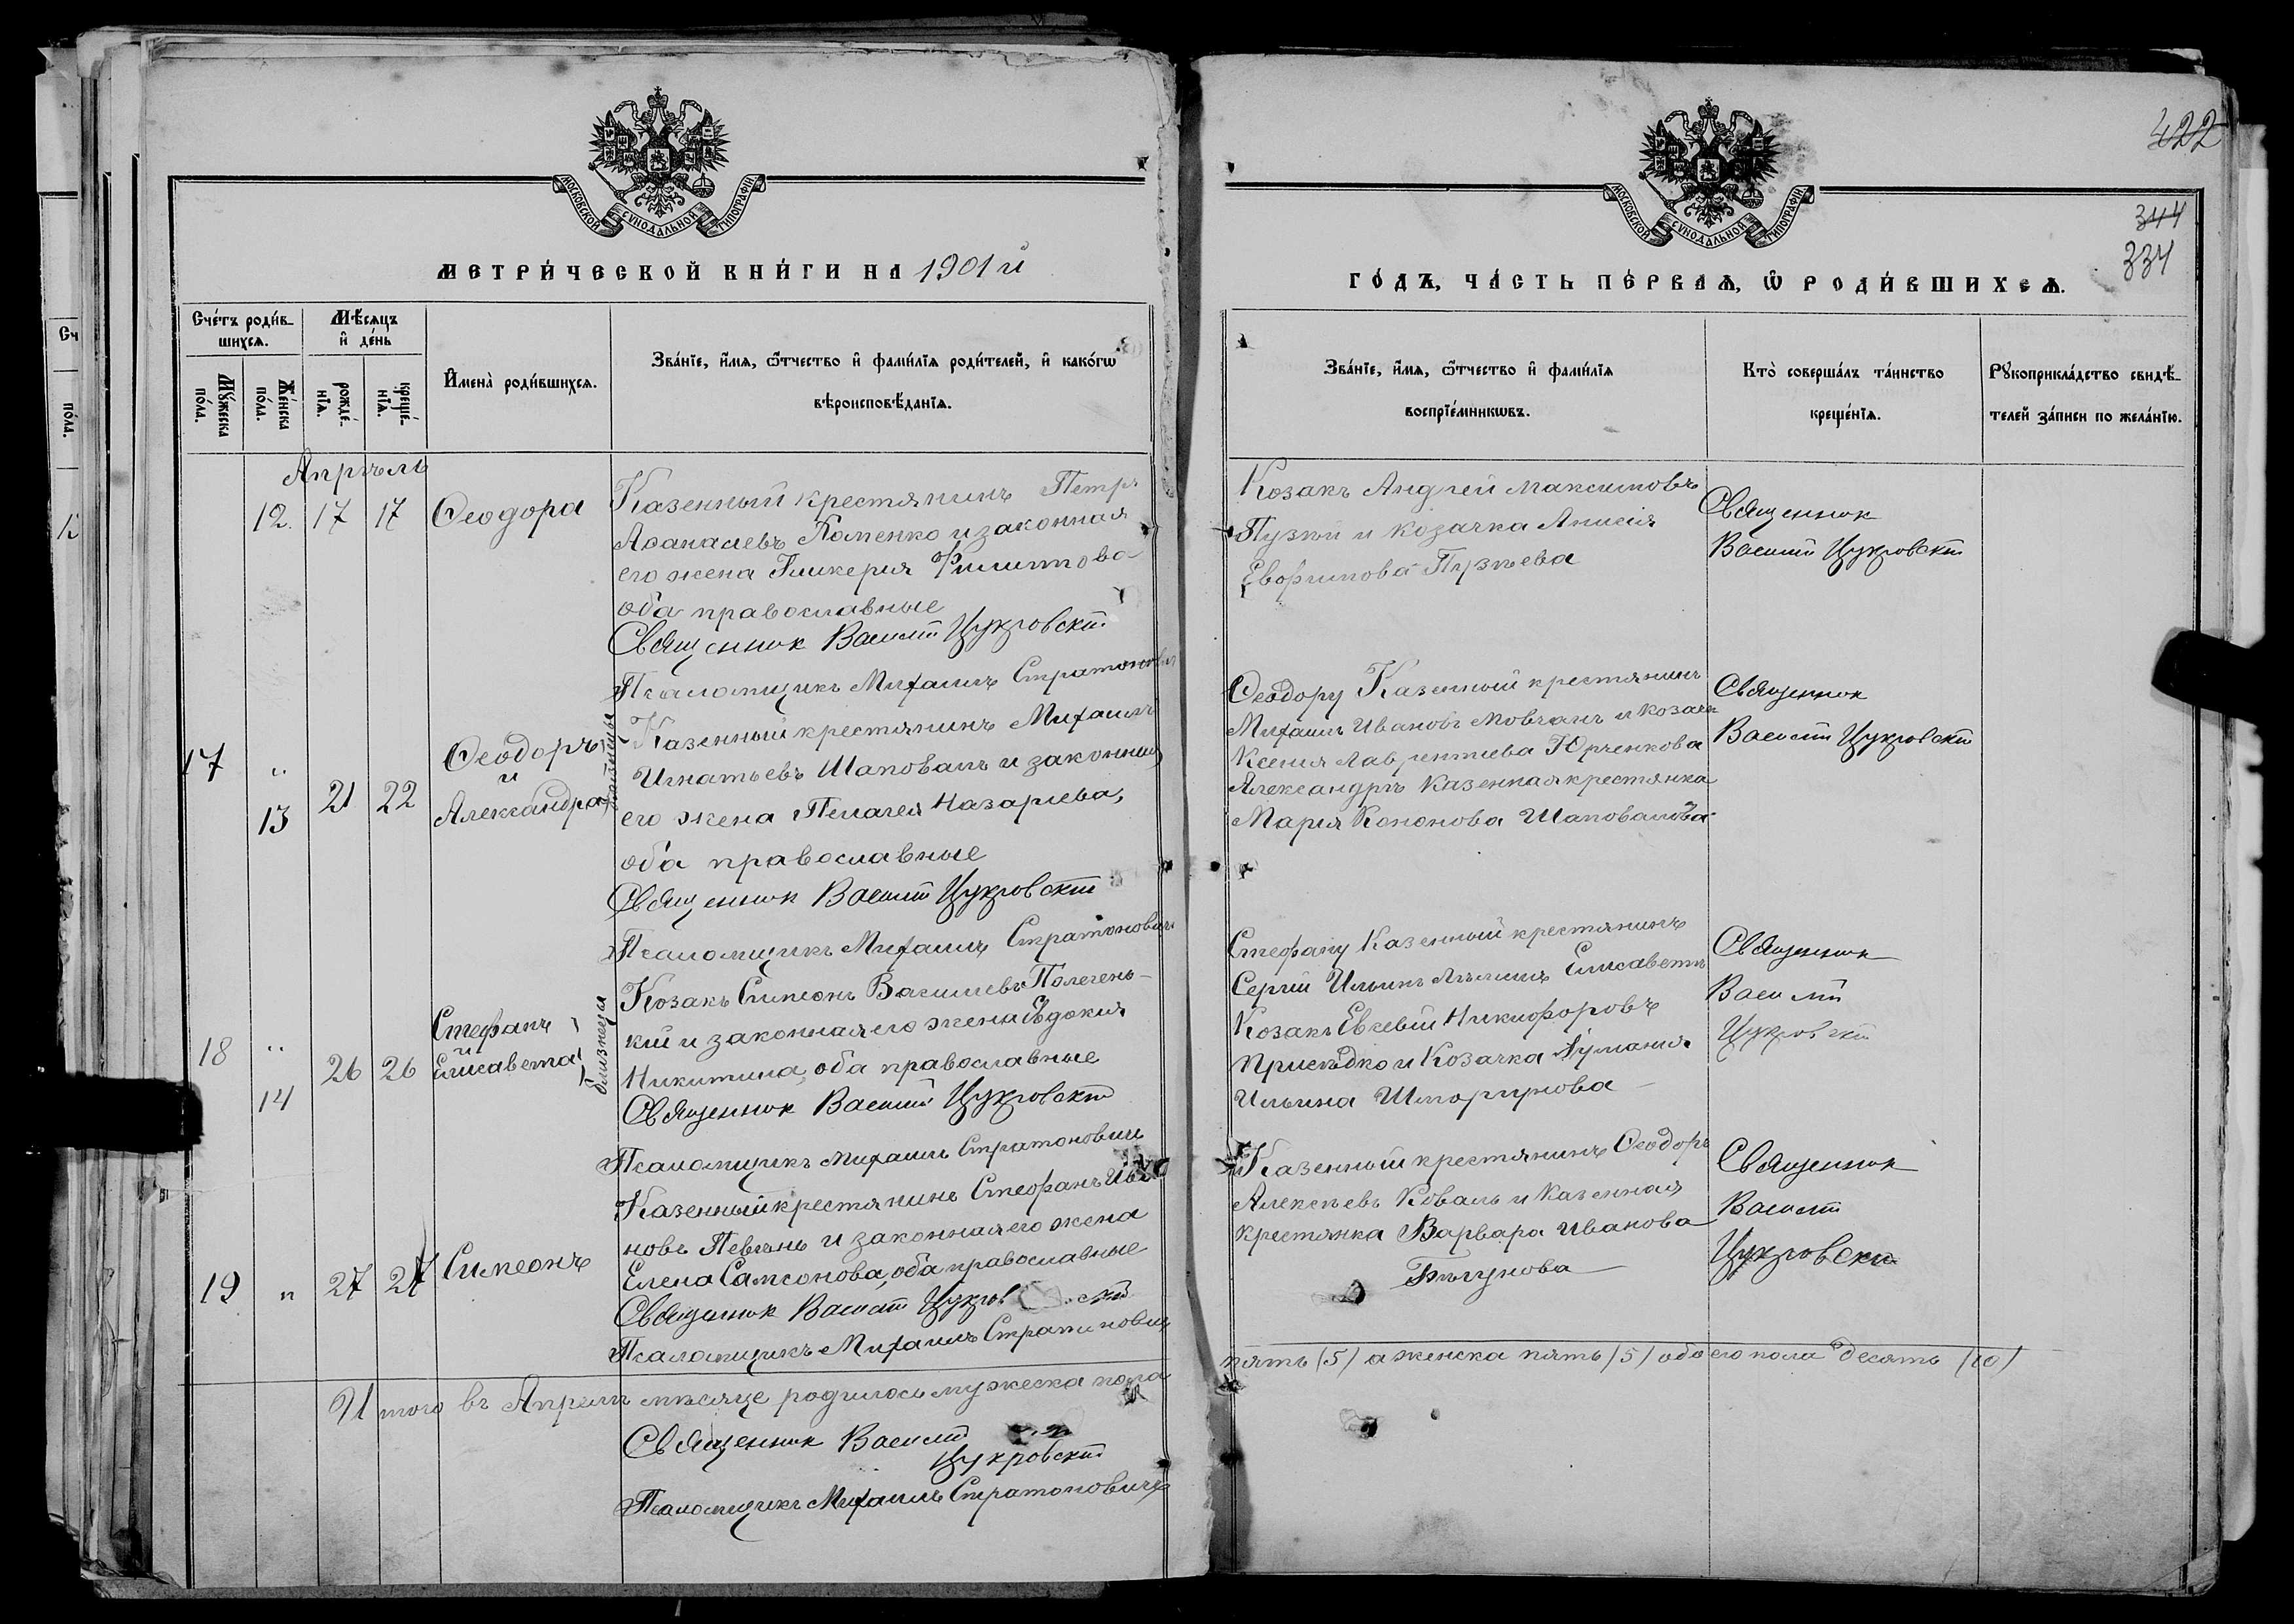 МОСКОВСКОЙ СѴНОДАЛЬНОЙ ТИПОГРАФІИ
МЕТРИ́ЧЕСКОЙ КНИ́ГИ НА 1901 й
Сче́тъ роди́вшихсѧ.
Мꙋ́жеска по́ла.
Же́нска по́ла.
Мѣ́сѧцъ и҆ де́нь
рожде́нїѧ.
креще́нїѧ.
И҆мена̀ роди́вшихсѧ.
Зва́нїе, и҆́мѧ, ѻ҆́тчество и҆ фами́лїѧ роди́телей, и҆ како́гѡ
вѣроисповѣ́данїѧ.
Апрѣль
12. 17 17 Ѳеодора
Казенный крестянинъ Петръ
Аѳанасиевъ Хоменко и законная
его жена Гликерия Филиппова
оба православные
Священник Василий Цукровский
Псаломщикъ Михаилъ Стратоновичъ
17 „ 13 21 22 Ѳеодоръ
и
Александра
близнеци
Казенный крестянинъ Михаилъ
Игнатьевъ Шаповалъ и законная
его жена Пелагея Назариева,
оба православные
Священник Василий Цукровский
Псаломщикъ Михаилъ Стратоновичъ
18 „ 14 26 26 Стефанъ
и
Елисавета
близнеци
Козакъ Симеонъ Василиевъ Полегень-
кий и законная его жена Евдокия
Никитина, оба православные
Священник Василий Цукровский
Псаломщикъ Михаилъ Стратоновичъ
19 „ 27 27 Симеонъ
Казенный крестянинъ Стефанъ Ива
новъ Певень и законная его жена
Елена Самсонова, оба православные
Священник Василий Цукровский
Псаломщикъ Михаилъ Стратоновичъ
Итого въ Апрелѣ мѣсяце родилось мужеска пола
Священник Василий
Цукровский
Псаломщикъ Михаилъ Стратоновичъ
422
344
334
МОСКОВСКОЙ СѴНОДАЛЬНОЙ ТИПОГРАФІИ
ГО́ДЪ, ЧА́СТЬ ПЕ́РВАѦ, Ѡ҆ РОДИ́ВШИХСѦ.
Зва́нїе, и҆́мѧ, ѻ҆́тчество и҆ фами́лїѧ
воспрїе́мникѡвъ.
Кто̀ соверша́лъ та́инство
креще́нїѧ.
Рꙋкоприкла́дство свидѣ́-
телей за́писи по жела́нїю.
Козакъ Андрей Максимовъ
Пузий и козачка Анисия
Евфимова Пузиева
Священник
Василий Цукровский
Ѳеодору Казенный крестянинъ
Михаилъ Ивановъ Мовчанъ и козачк
Ксения Лаврентиева Юрченкова
Александрѣ казенная крестянка
Мария Кононова Шаповалова
Священник
Василий Цукровский
Стефану Казенный крестянинъ
Сергий Ильинъ Елисаветѣ
Козакъ Евсевий Никифоровъ
Присѣдко и Козачка
Ильина Шморгунова
Священник
Василий
Цукровский
Казенный крестянинъ Ѳеодоръ
Алексѣевъ Коваль и казенная
крестянка Варвара Иванова
Бѣгунова
Священник
Василий
Цукровский
пять (5) а женска пять (5) обоего пола десять (10)